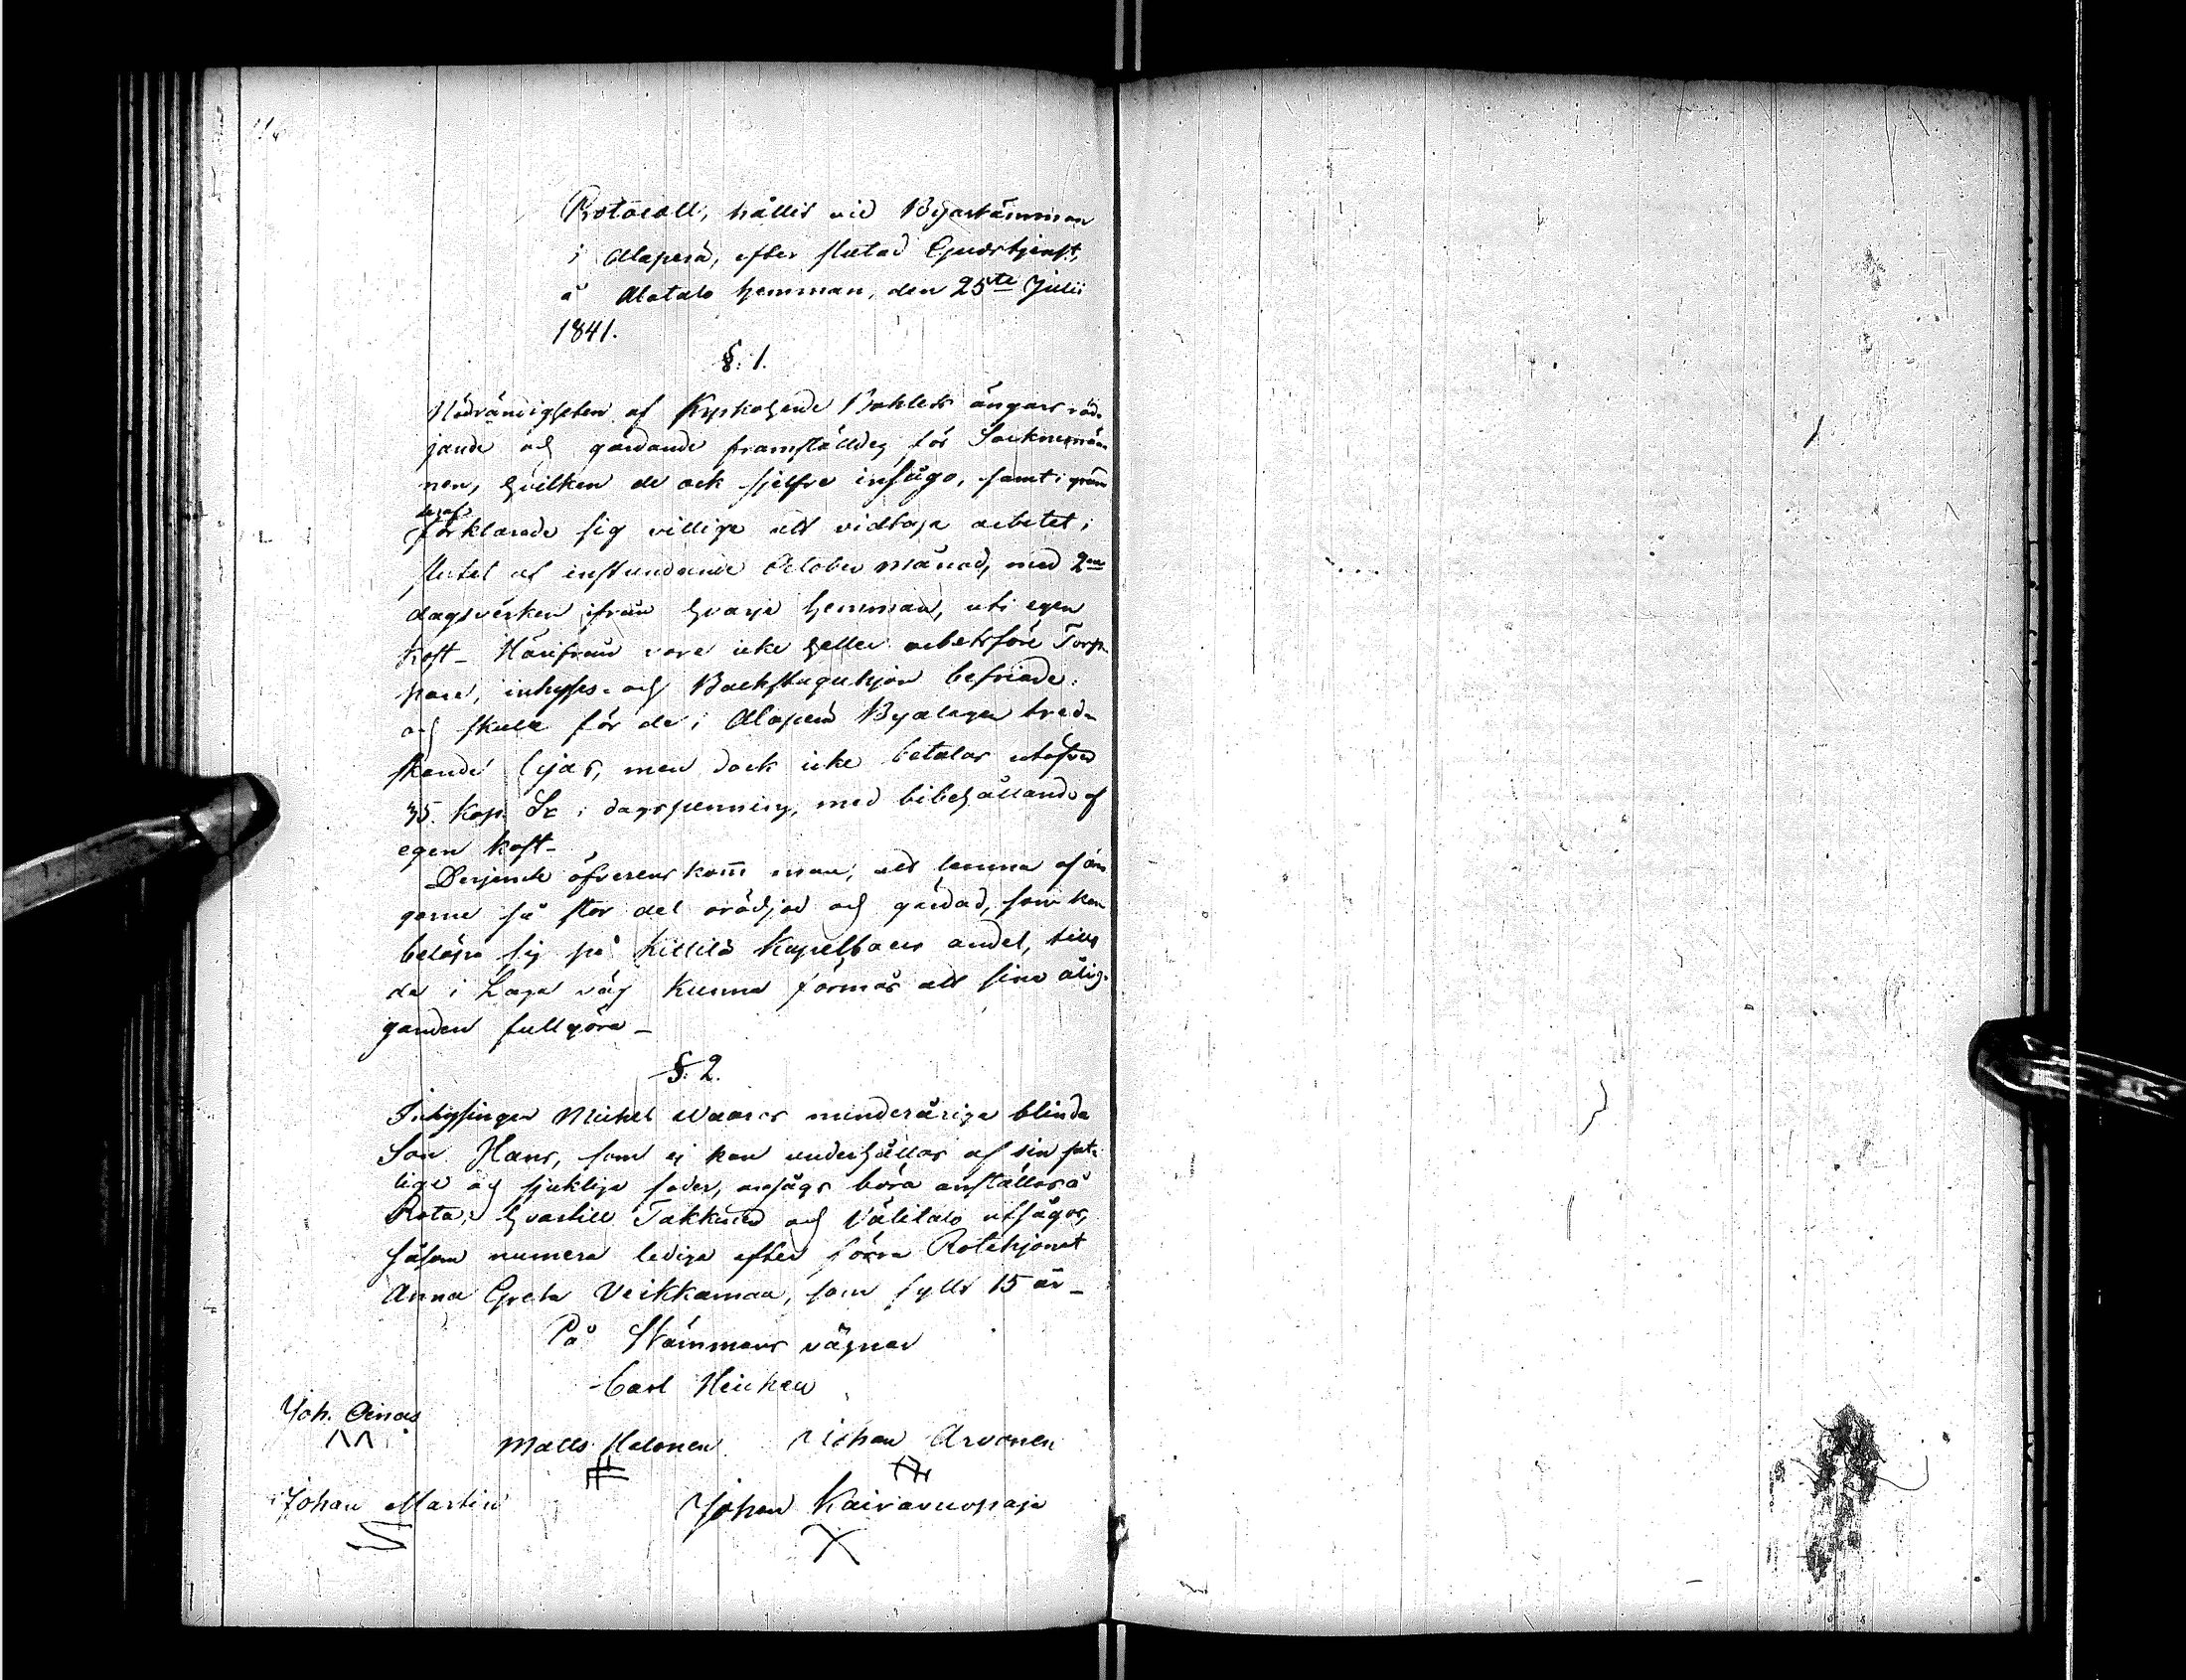 Protocoll, hållit vid Byastämman
i Alaperä, efter slutad Gudstjenst,
å Alatalo hemman, den 25te Julii
1841.
§. 1.
Nödvändigheten af Kyrkoherde Bohlets ängars röd-
jande och gärdande framställdes för Socknemän-
nen, hvilken de ock sjelfve insågo, samt i grund
deraf
förklarade sig villige att vidtaga arbetet i
slutet af instundande October månad, med 2ne
dagsverken ifrån hvarje hemman, uti egen
kost_ Härifrån vore icke heller arbetsföre Torp-
pare, inhyses- och Backstuguhjon befriade:
och skulle för de i Alaperä Byalagen tred-
skande lejas, men dock icke betalas utöfver
35. Kop. Sr i dagspenning, med bibehållande af
egen kost_
Derjemte öfverenskom man, att lemna af än-
garne så stor del orödjad och gärdad, som kan
belöpa sig på Kittilä Kapellboers andel, tills
de i Laga väg kunna förmås att sina ålig-
ganden fullgöra_
§. 2.
Inhysingen Michel Waaras minderåriga blinda
Son Hans, som ej kan underhållas af sin fat-
tige och sjuklige fader, ansågs böra anställas å
Rota, hvartill Takkinen och Välitalo utsågos,
såsom numera lediga efter förra Rotehjonet
Anna Greta Veikkamaa, som fyllt 15 år_
På Stämmans vägnar
Carl Heickell
Joh. Oinas
Matts Halonen Johan Arvonen
Johan Martin Johan Kairavuopaja